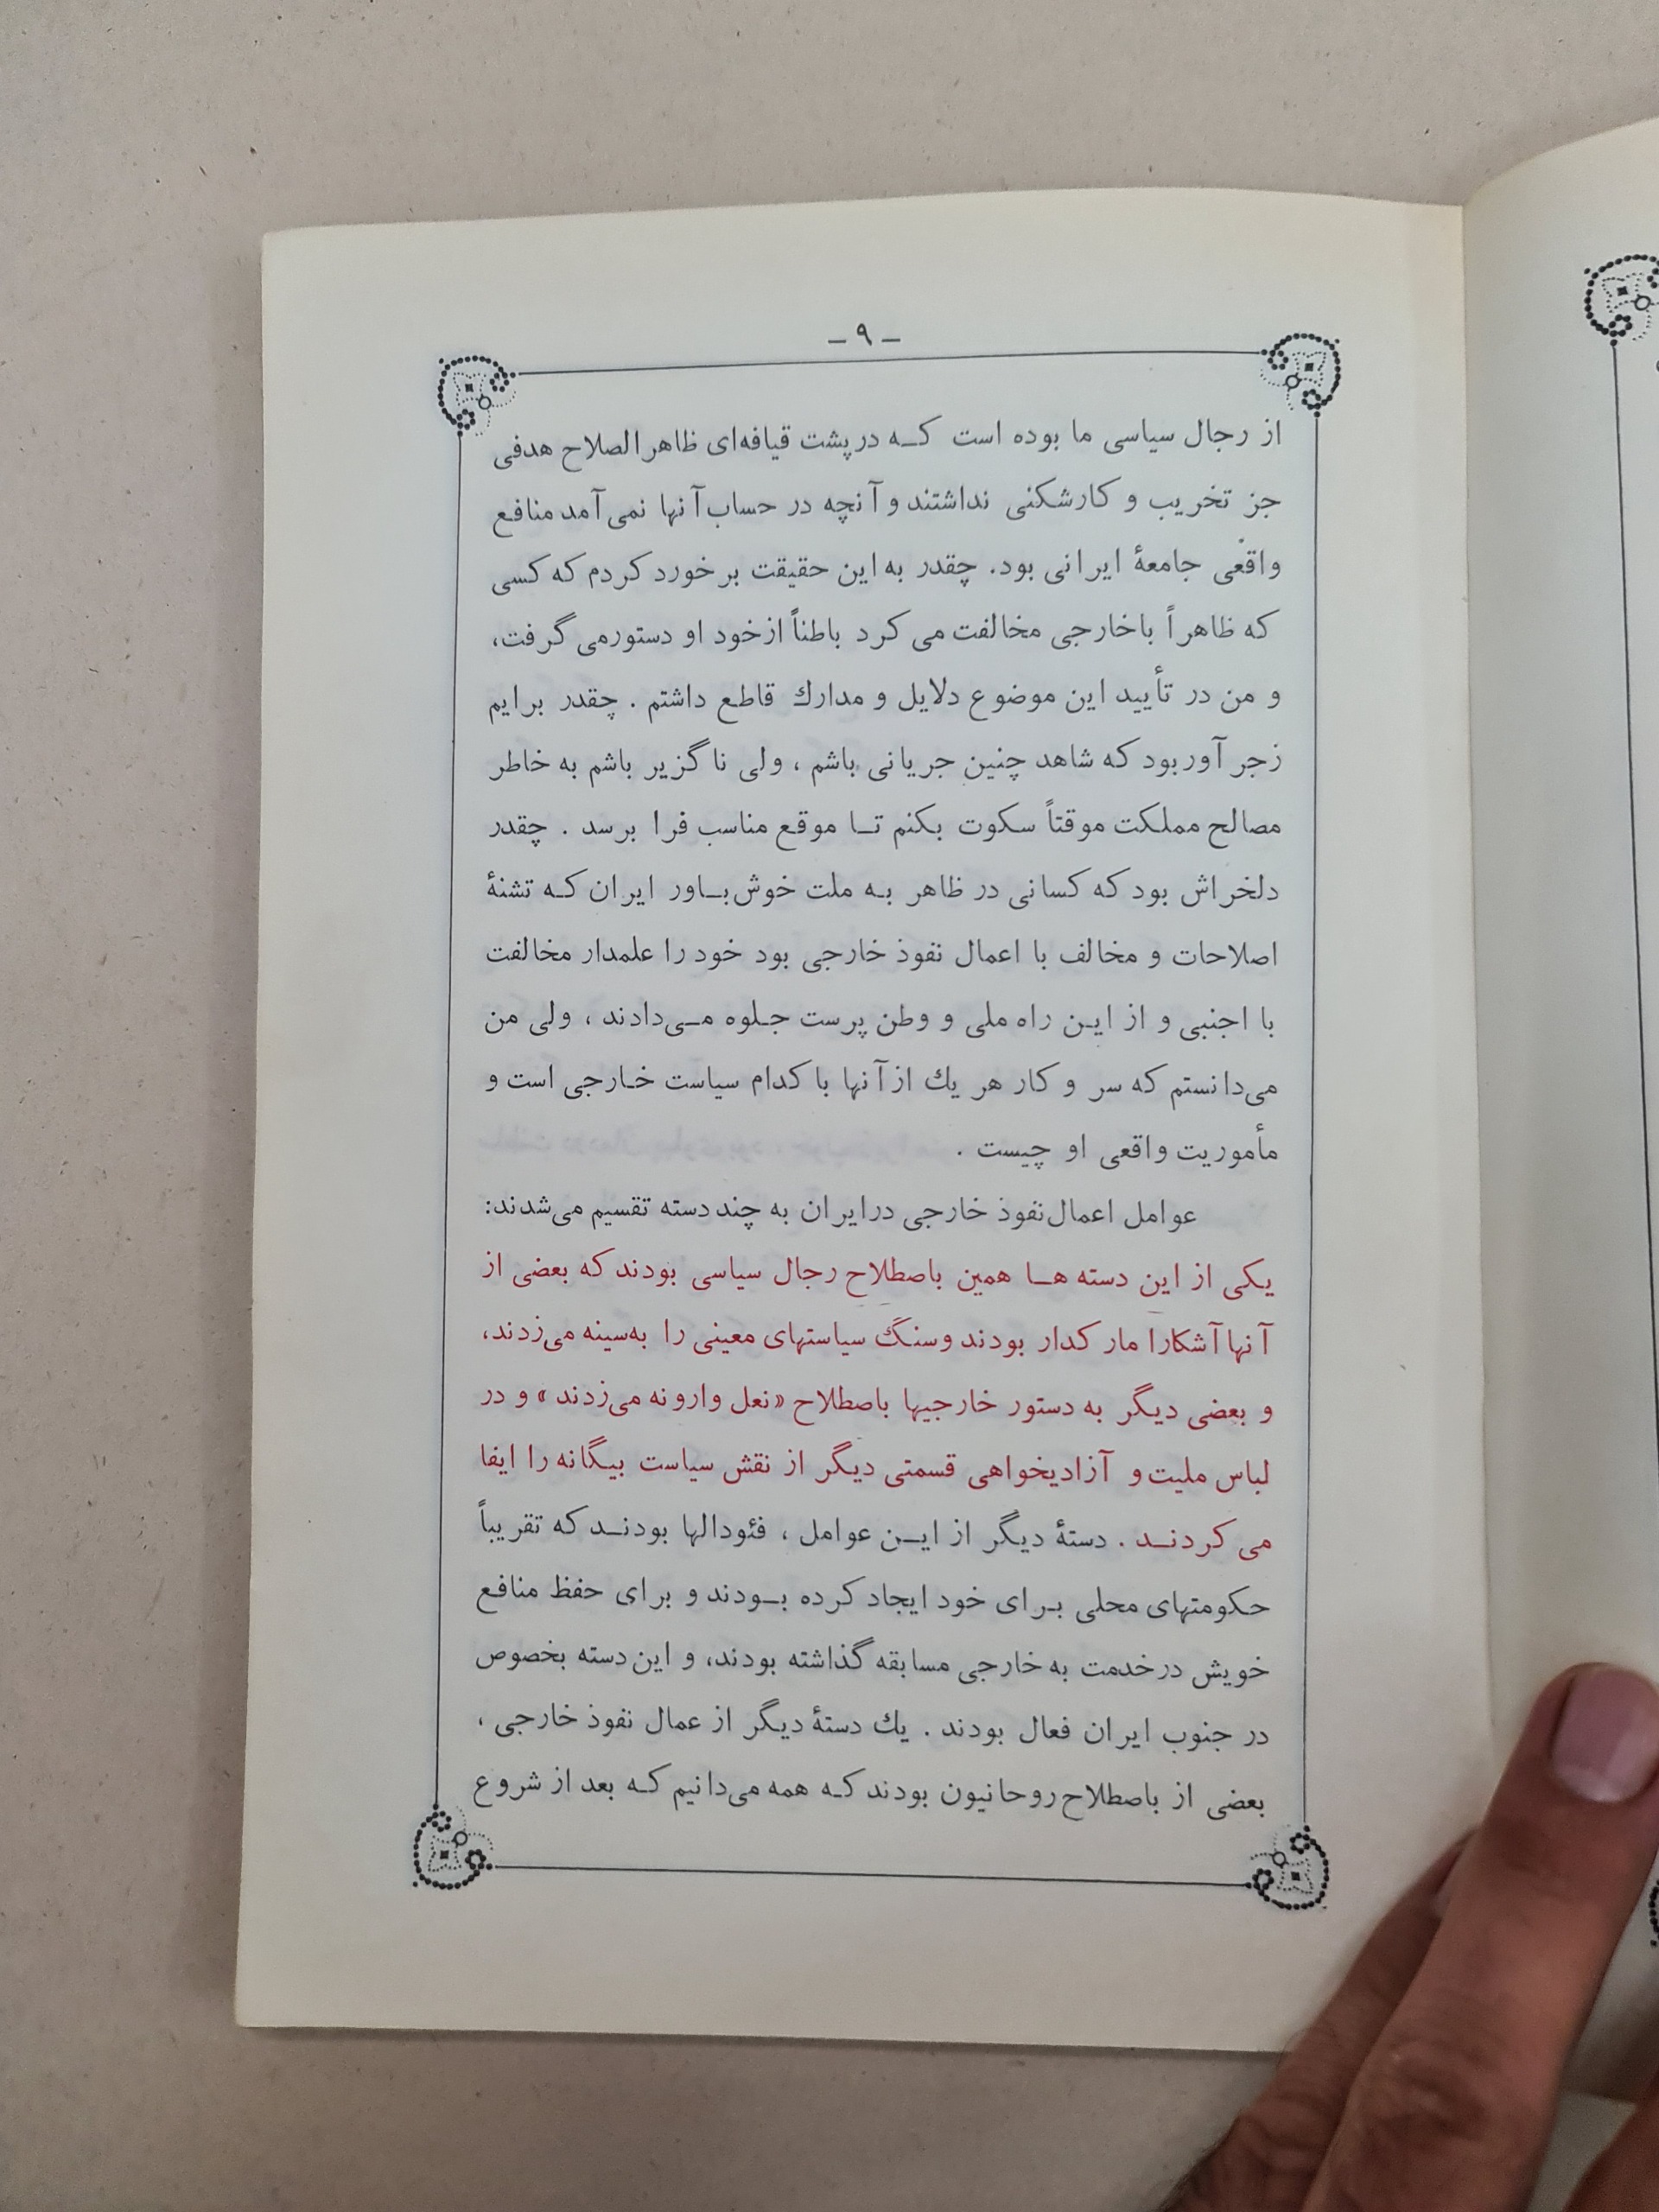 - ۹ -
از رجال سیاسی ما بوده است که در پشت قیافه‌ای ظاهرالصلاح هدفی
جز تخریب و کارشکنی نداشتند و آنچه در حساب آنها نمی‌آمد منافع
واقعی جامعهٔ ایرانی بود. چقدر به این حقیقت برخورد کردم که کسی
که ظاهراً با خارجی مخالفت می کرد باطناً از خود او دستور می گرفت،
و من در تأیید این موضوع دلایل و مدارك قاطع داشتم . چقدر برایم
زجر آور بود که شاهد چنین جریانی باشم ، ولی ناگزیر باشم به خاطر
مصالح مملکت موقتاً سکوت بکنم تا موقع مناسب فرا برسد . چقدر
دلخراش بود که کسانی در ظاهر به ملت خوش‌باور ایران که تشنهٔ
اصلاحات و مخالف با اعمال نفوذ خارجی بود خود را علمدار مخالفت
با اجنبی و از این راه ملی و وطن پرست جلوه می‌دادند ، ولی من
می‌دانستم که سر و کار هر یك از آنها با کدام سیاست خارجی است و
مأموریت واقعی او چیست .
عوامل اعمال نفوذ خارجی در ایران به چند دسته تقسیم می‌شدند:
یکی از این دسته ها همین باصطلاح رجال سیاسی بودند که بعضی از
آنها آشکارا مارکدار بودند و سنگ سیاستهای معینی را به‌سینه می‌زدند،
و بعضی دیگر به دستور خارجیها باصطلاح «نعل وارونه می‌زدند» و در
لباس ملیت و آزادیخواهی قسمتی دیگر از نقش سیاست بیگانه را ایفا
می کردند . دستهٔ دیگر از این عوامل ، فئودالها بودند که تقریباً
حکومتهای محلی برای خود ایجاد کرده بودند و برای حفظ منافع
خویش در خدمت به خارجی مسابقه گذاشته بودند، و این دسته بخصوص
در جنوب ایران فعال بودند . یك دستهٔ دیگر از عمال نفوذ خارجی ،
بعضی از باصطلاح روحانیون بودند که همه می‌دانیم که بعد از شروع